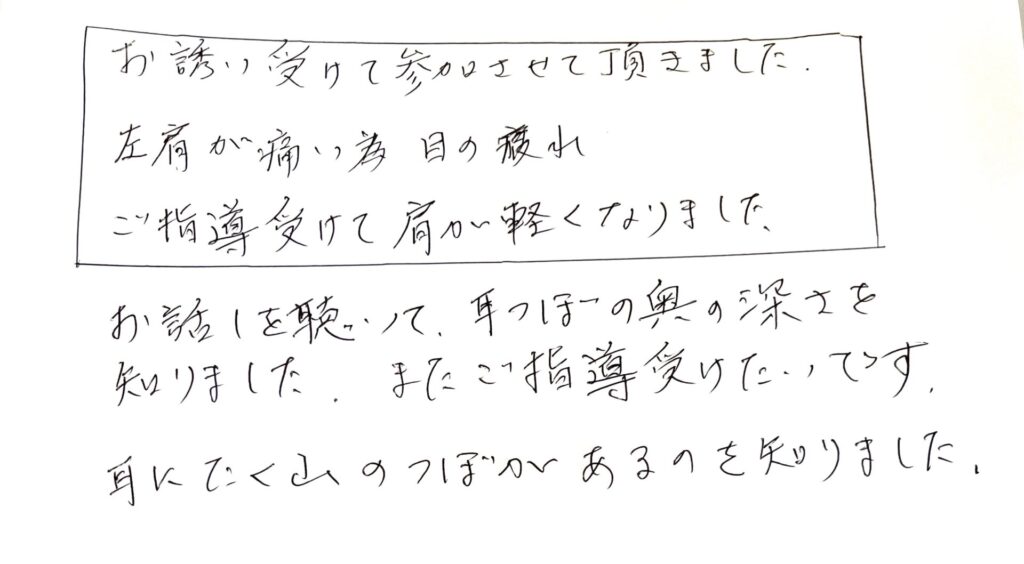 お誘い受けて参加させて頂きました.
左肩が痛い為 目の疲れ
ご指導受けて肩が軽くなりました.
お話しを聴いて、耳つぼの奥の深さを
知りました. またご指導受けたいです.
耳にたく山のつぼがあるのを知りました.